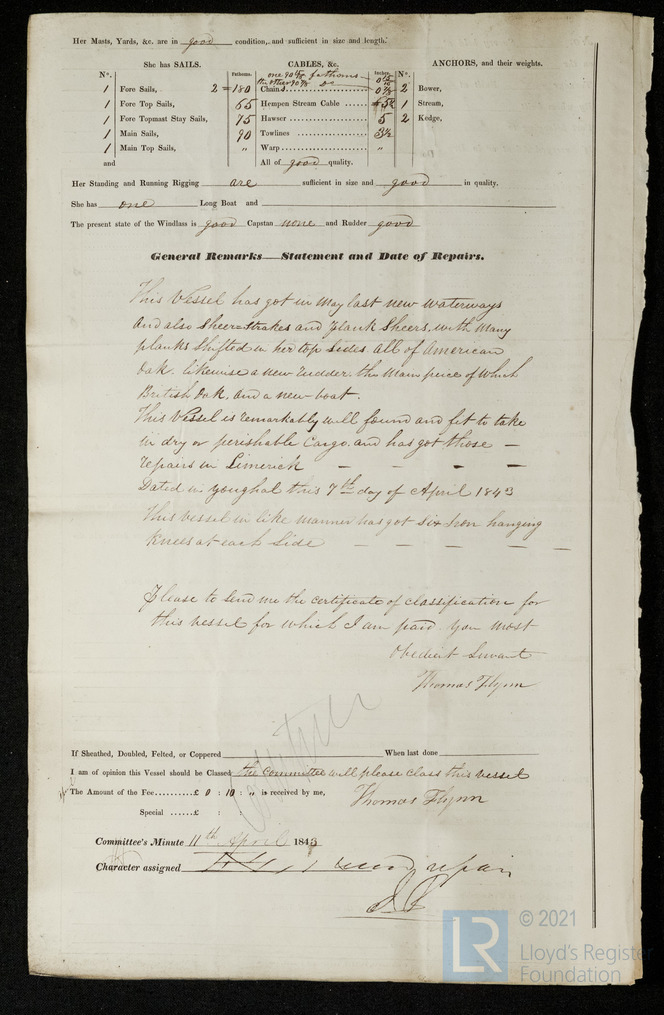 Her Masts, Yards, &c. are in good condition, and sufficient in size and length.
She has SAILS.
CABLES, &c.
ANCHORS, and their weights.
N°.
Fathoms.
one 90 fathoms
the other 90 Do
Inches.
N°.
1 Fore Sails, 2 = 180 Chains 0 7/8 2 Bower,
1 Fore Top Sails, 65 Hempen Stream Cable 5 1 Stream,
1 Fore Topmast Stay Sails, 75 Hawser 5 2 Kedge,
1 Main Sails, 90 Towlines 3½
1 Main Top Sails, " Warp "
and All of good quality.
Her Standing and Running Rigging are sufficient in size and good in quality.
She has one Long Boat and
The present state of the Windlass is good Capstan none and Rudder good
General Remarks—Statement and Date of Repairs.
This Vessel has got in May last new waterways
and also Sheer=Strakes and Plank Sheers, with many
planks Shifted in her top sides all of American
Oak. likewise a new rudder. the main peice of which
British Oak, and a new boat.
This Vessel is remarkably well found and fit to take
in dry or perishable Cargo. and has got those —
repairs in Limerick — — — —
Dated in Youghal this 7th day of April 1843
This vessel in like manner has got six Iron hanging
Knees at each Side — — — — —
Please to send me the certificate of classification for
this vessel for which I am paid. you most
Obedient Servant
Thomas Flynn
If Sheathed, Doubled, Felted, or Coppered When last done
I am of opinion this Vessel should be Classed the Committee will please class this vessel
The Amount of the Fee £ 0 : 10 : " is received by me, Thomas Flynn
Special £ :
Committee's Minute 11th April 1843
Character assigned repair
LR
© 2021
Lloyd's Register
Foundation